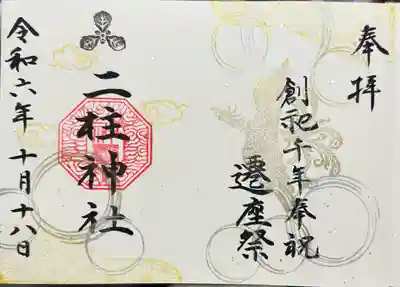 奉拝
創祀千年奉祝
遷座祭
二柱神社
令和六年十月十八日